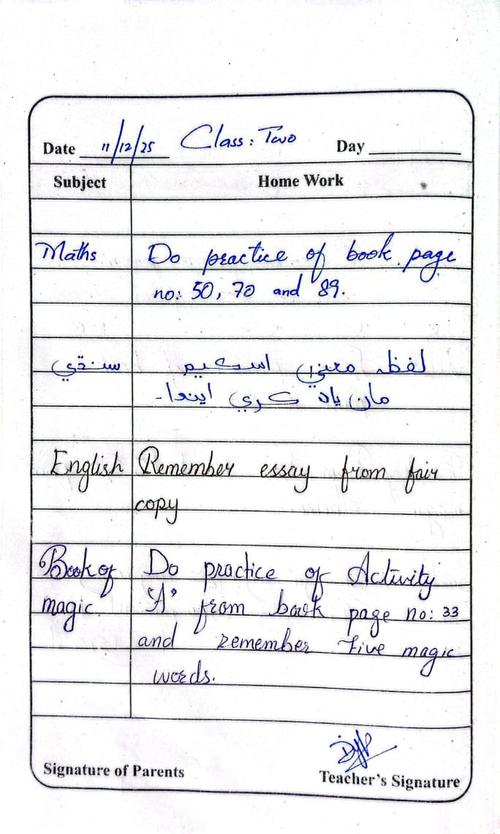 Date 11/12/25 Class: Two Day
Subject Home Work
Maths Do practice of book page
no: 50, 70 and 89.
سنڌي لفظ معنيٰ اسڪيم
مان ياد ڪري ايندا۔
English Remember essay from fair
copy
Book of Do practice of Activity
magic "A" from book page no: 33
and remember Five magic
words.
Signature of Parents Teacher's Signature